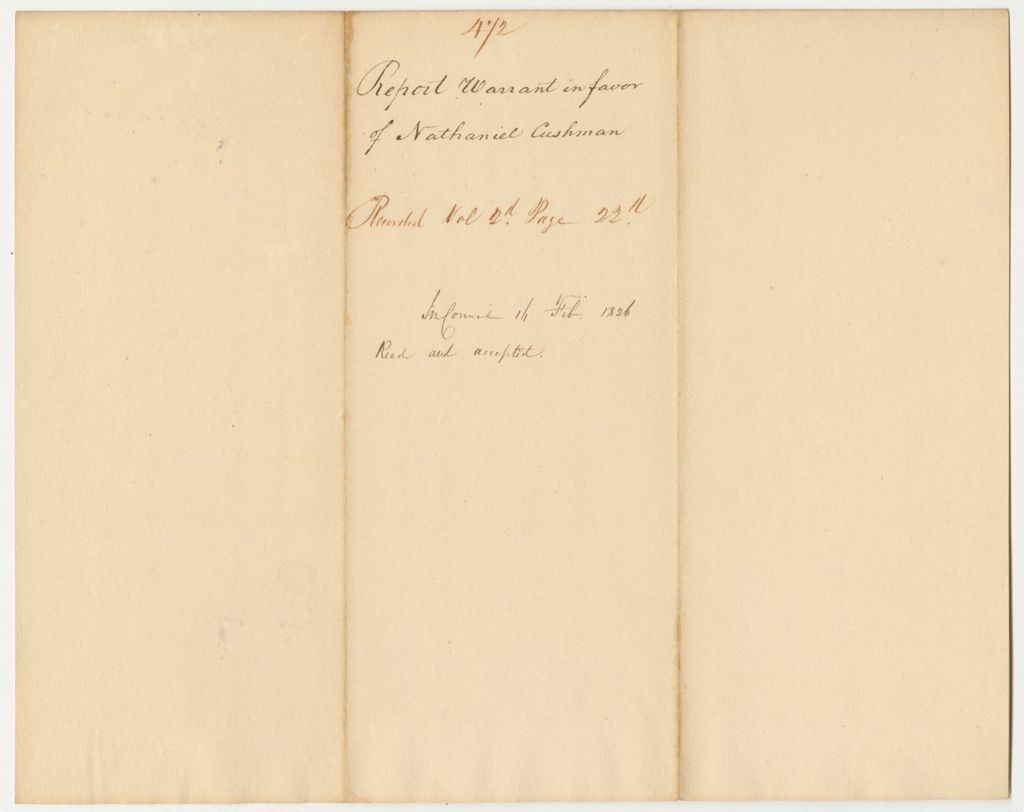 472
Report Warrant in favor
of Nathaniel Cushman
Recorded Vol 2d. Page 22d.
In Council 16. Feb. 1826
Read and accepted.